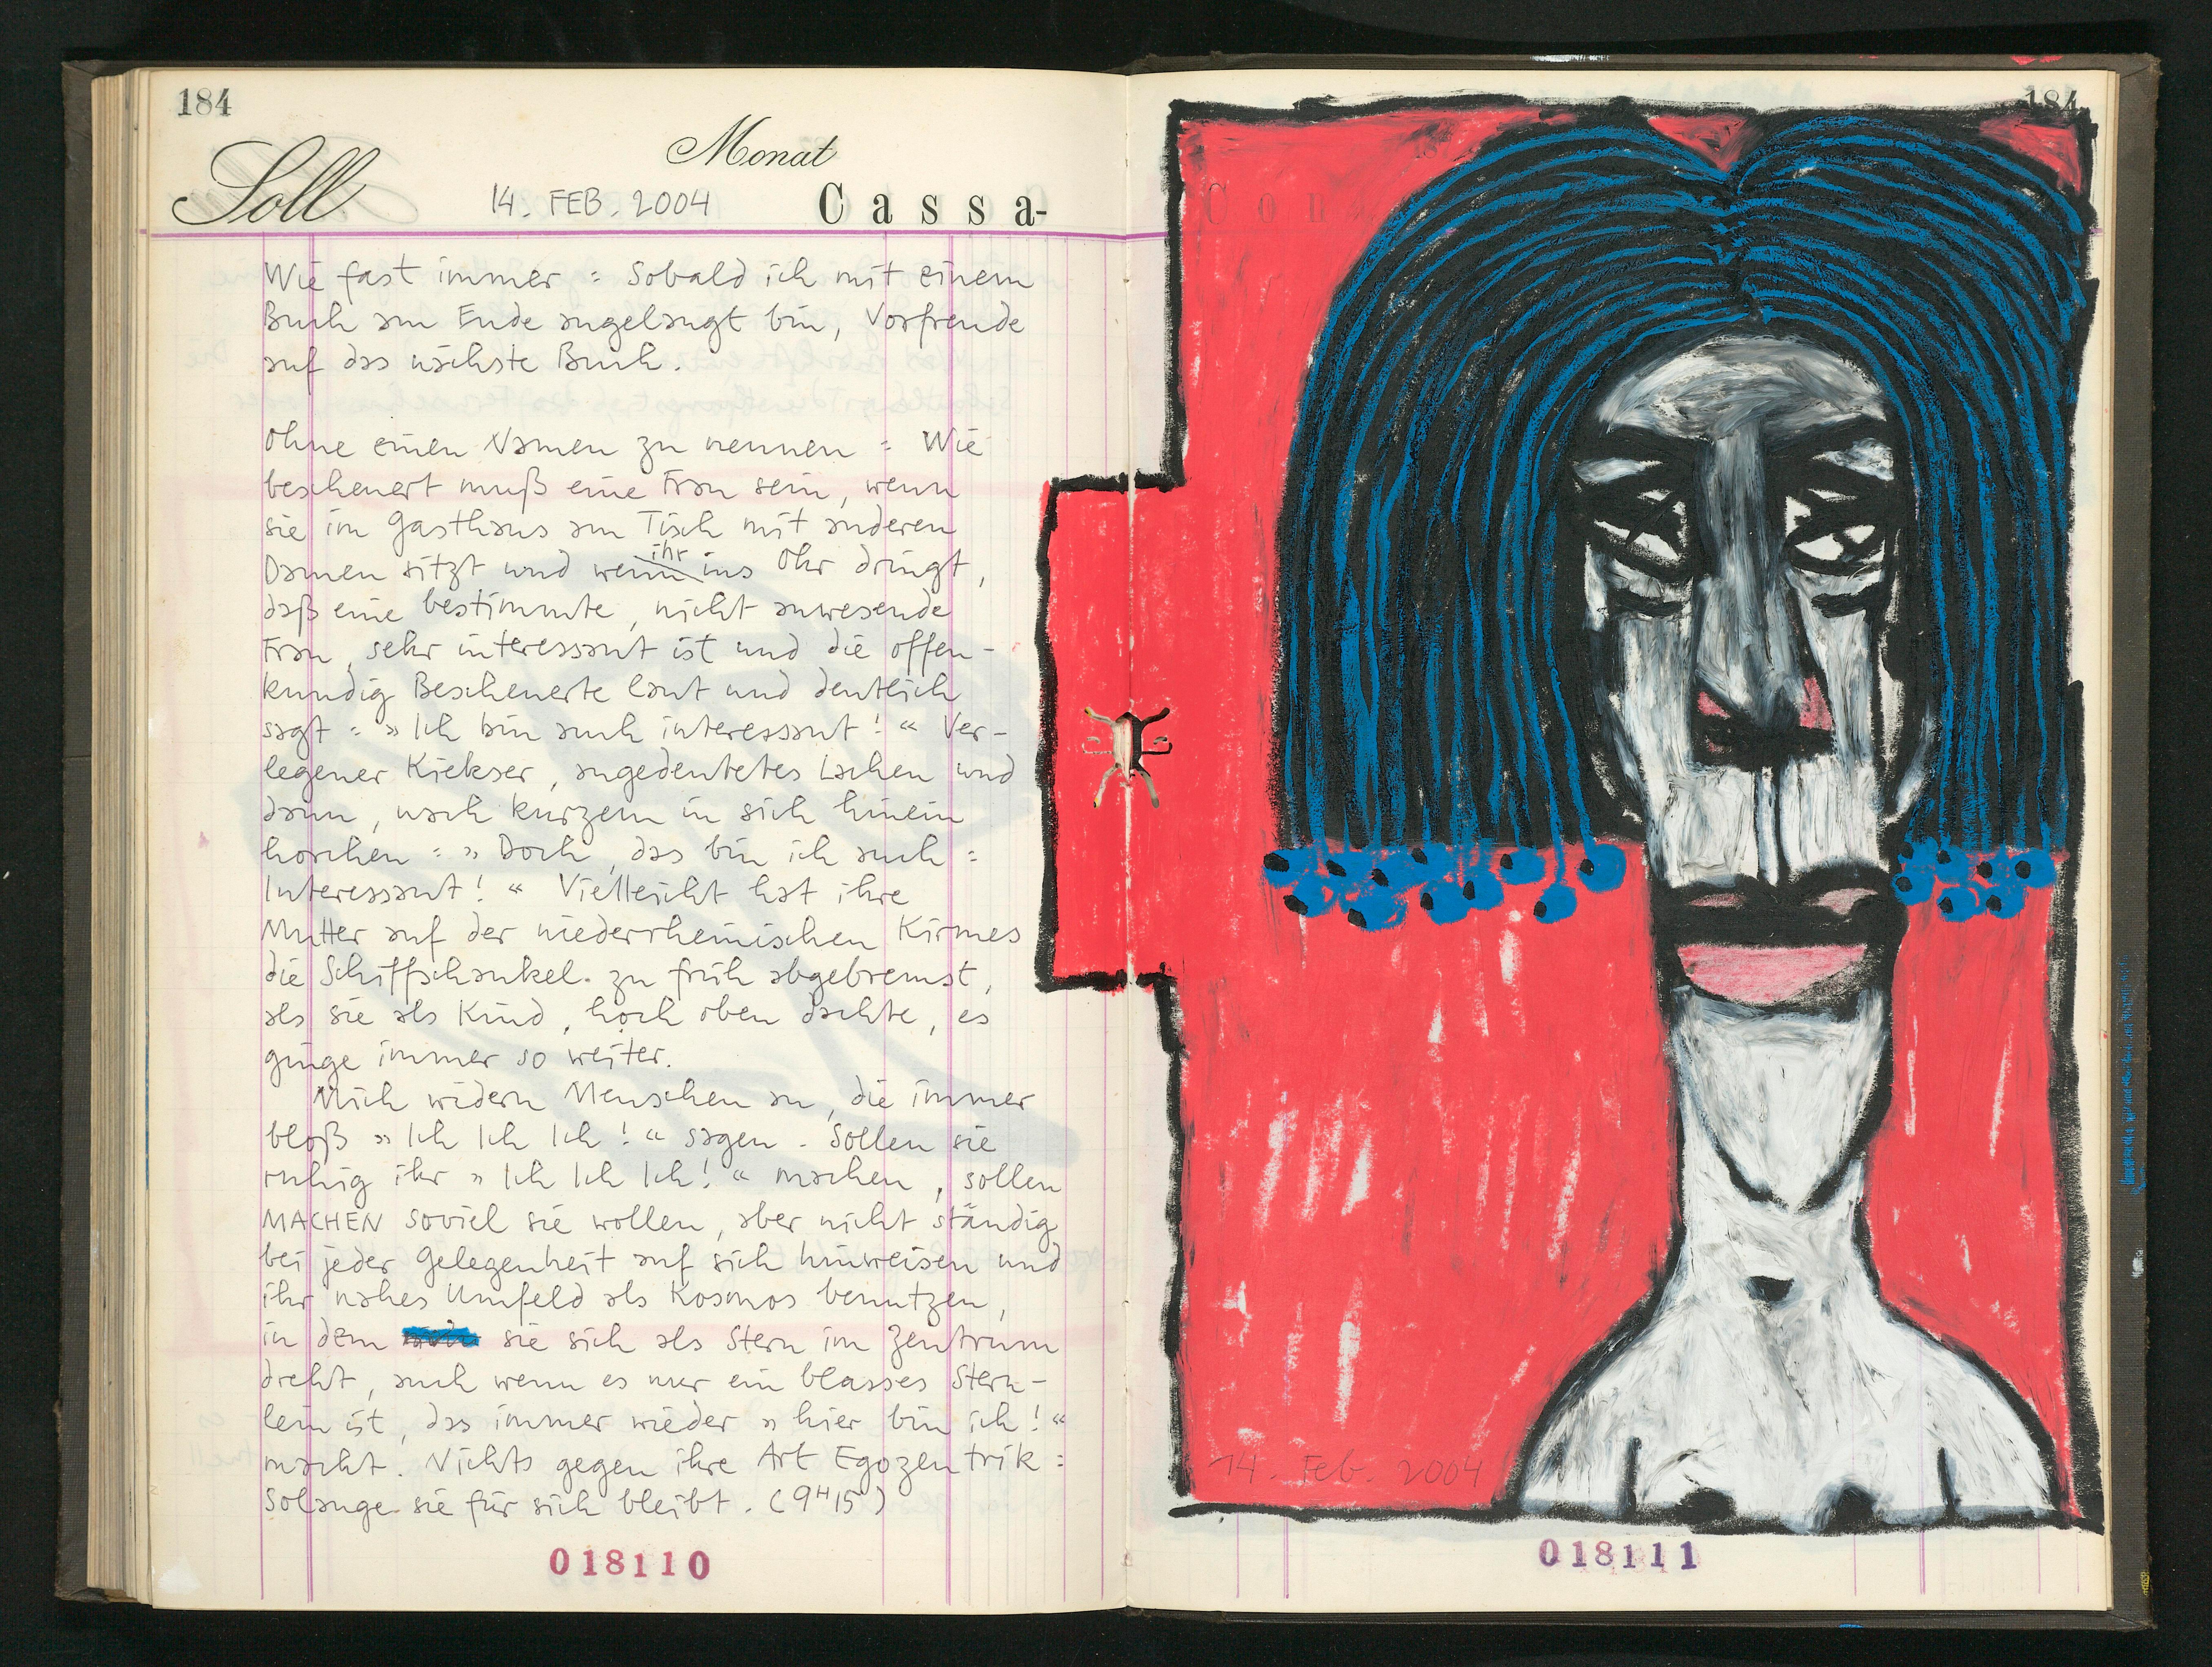 184
Monat
Soll 14. FEB. 2004 Cassa-
Wie fast immer: Sobald ich mit einem
Buch am Ende angelangt bin, Vorfreude
auf das nächste Buch.
Ohne einen Namen zu nennen: Wie
bescheuert muß eine Frau sein, wenn
sie im Gasthaus am Tisch mit anderen
Damen sitzt und wenn ihr ins Ohr dringt,
daß eine bestimmte, nicht anwesende
Frau, sehr interessant ist und die offen-
kundig Bescheuerte laut und deutlich
sagt: »Ich bin auch interessant!“ Ver-
legener Kiekser, angedeutetes Lachen und
dann, nach kurzem in sich hinein
horchen: »Doch, das bin ich auch:
Interessant!“ Vielleicht hat ihre
Mutter auf der niederrheinischen Kirmes
die Schiffschaukel zu früh abgebremst,
als sie als Kind, hoch oben dachte, es
ginge immer so weiter.
Mich widern Menschen an, die immer
bloß »Ich Ich Ich!“ sagen. Sollen sie
ruhig ihr »Ich Ich Ich!“ machen, sollen
MACHEN soviel sie wollen, aber nicht ständig
bei jeder Gelegenheit auf sich hinweisen und
ihr nahes Umfeld als Kosmos benutzen,
in dem sie sich als Stern im Zentrum
dreht, auch wenn es nur ein blasses Stern-
lein ist, das immer wieder »hier bin ich!“
macht. Nichts gegen ihre Art Egozentrik:
Solange sie für sich bleibt. (9H15)
018110
184
Con
14. Feb. 2004
018111